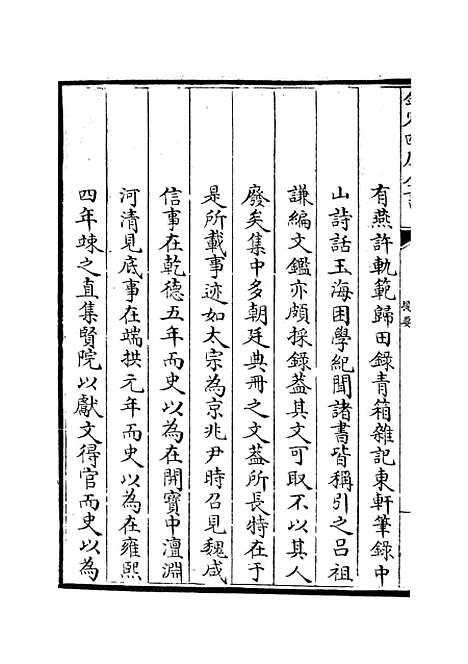 有燕許軌範歸田錄青箱雜記東軒筆錄中
山詩話玉海困學紀聞諸書皆稱引之呂祖
謙編文鑑亦頗採錄葢其文可取不以其人
廢矣集中多朝廷典冊之文葢所長特在于
是所載事迹如太宗為京兆尹時召見魏咸
信事在乾德五年而史以為在開寶中澶淵
河清見底事在端拱元年而史以為在雍熙
四年竦之直集賢院以獻文得官而史以為
提要